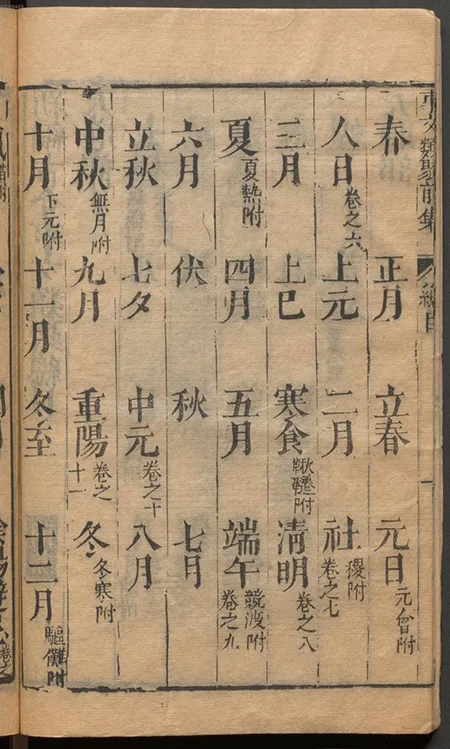 事文類聚前集
春 正月 立春 元日 元會附
人日 卷之六 上元 二月 社 稷附 卷之七
三月 上巳 寒食 鞦韆附 清明 卷之八
夏 夏熱附 四月 五月 端午 競渡附 卷之九
六月 伏 秋 七月
立秋 七夕 中元 卷之十 八月
中秋 無月附 九月 重陽 卷之十一 冬 冬寒附
十月 下元附 十一月 冬至 十二月 驅儺附